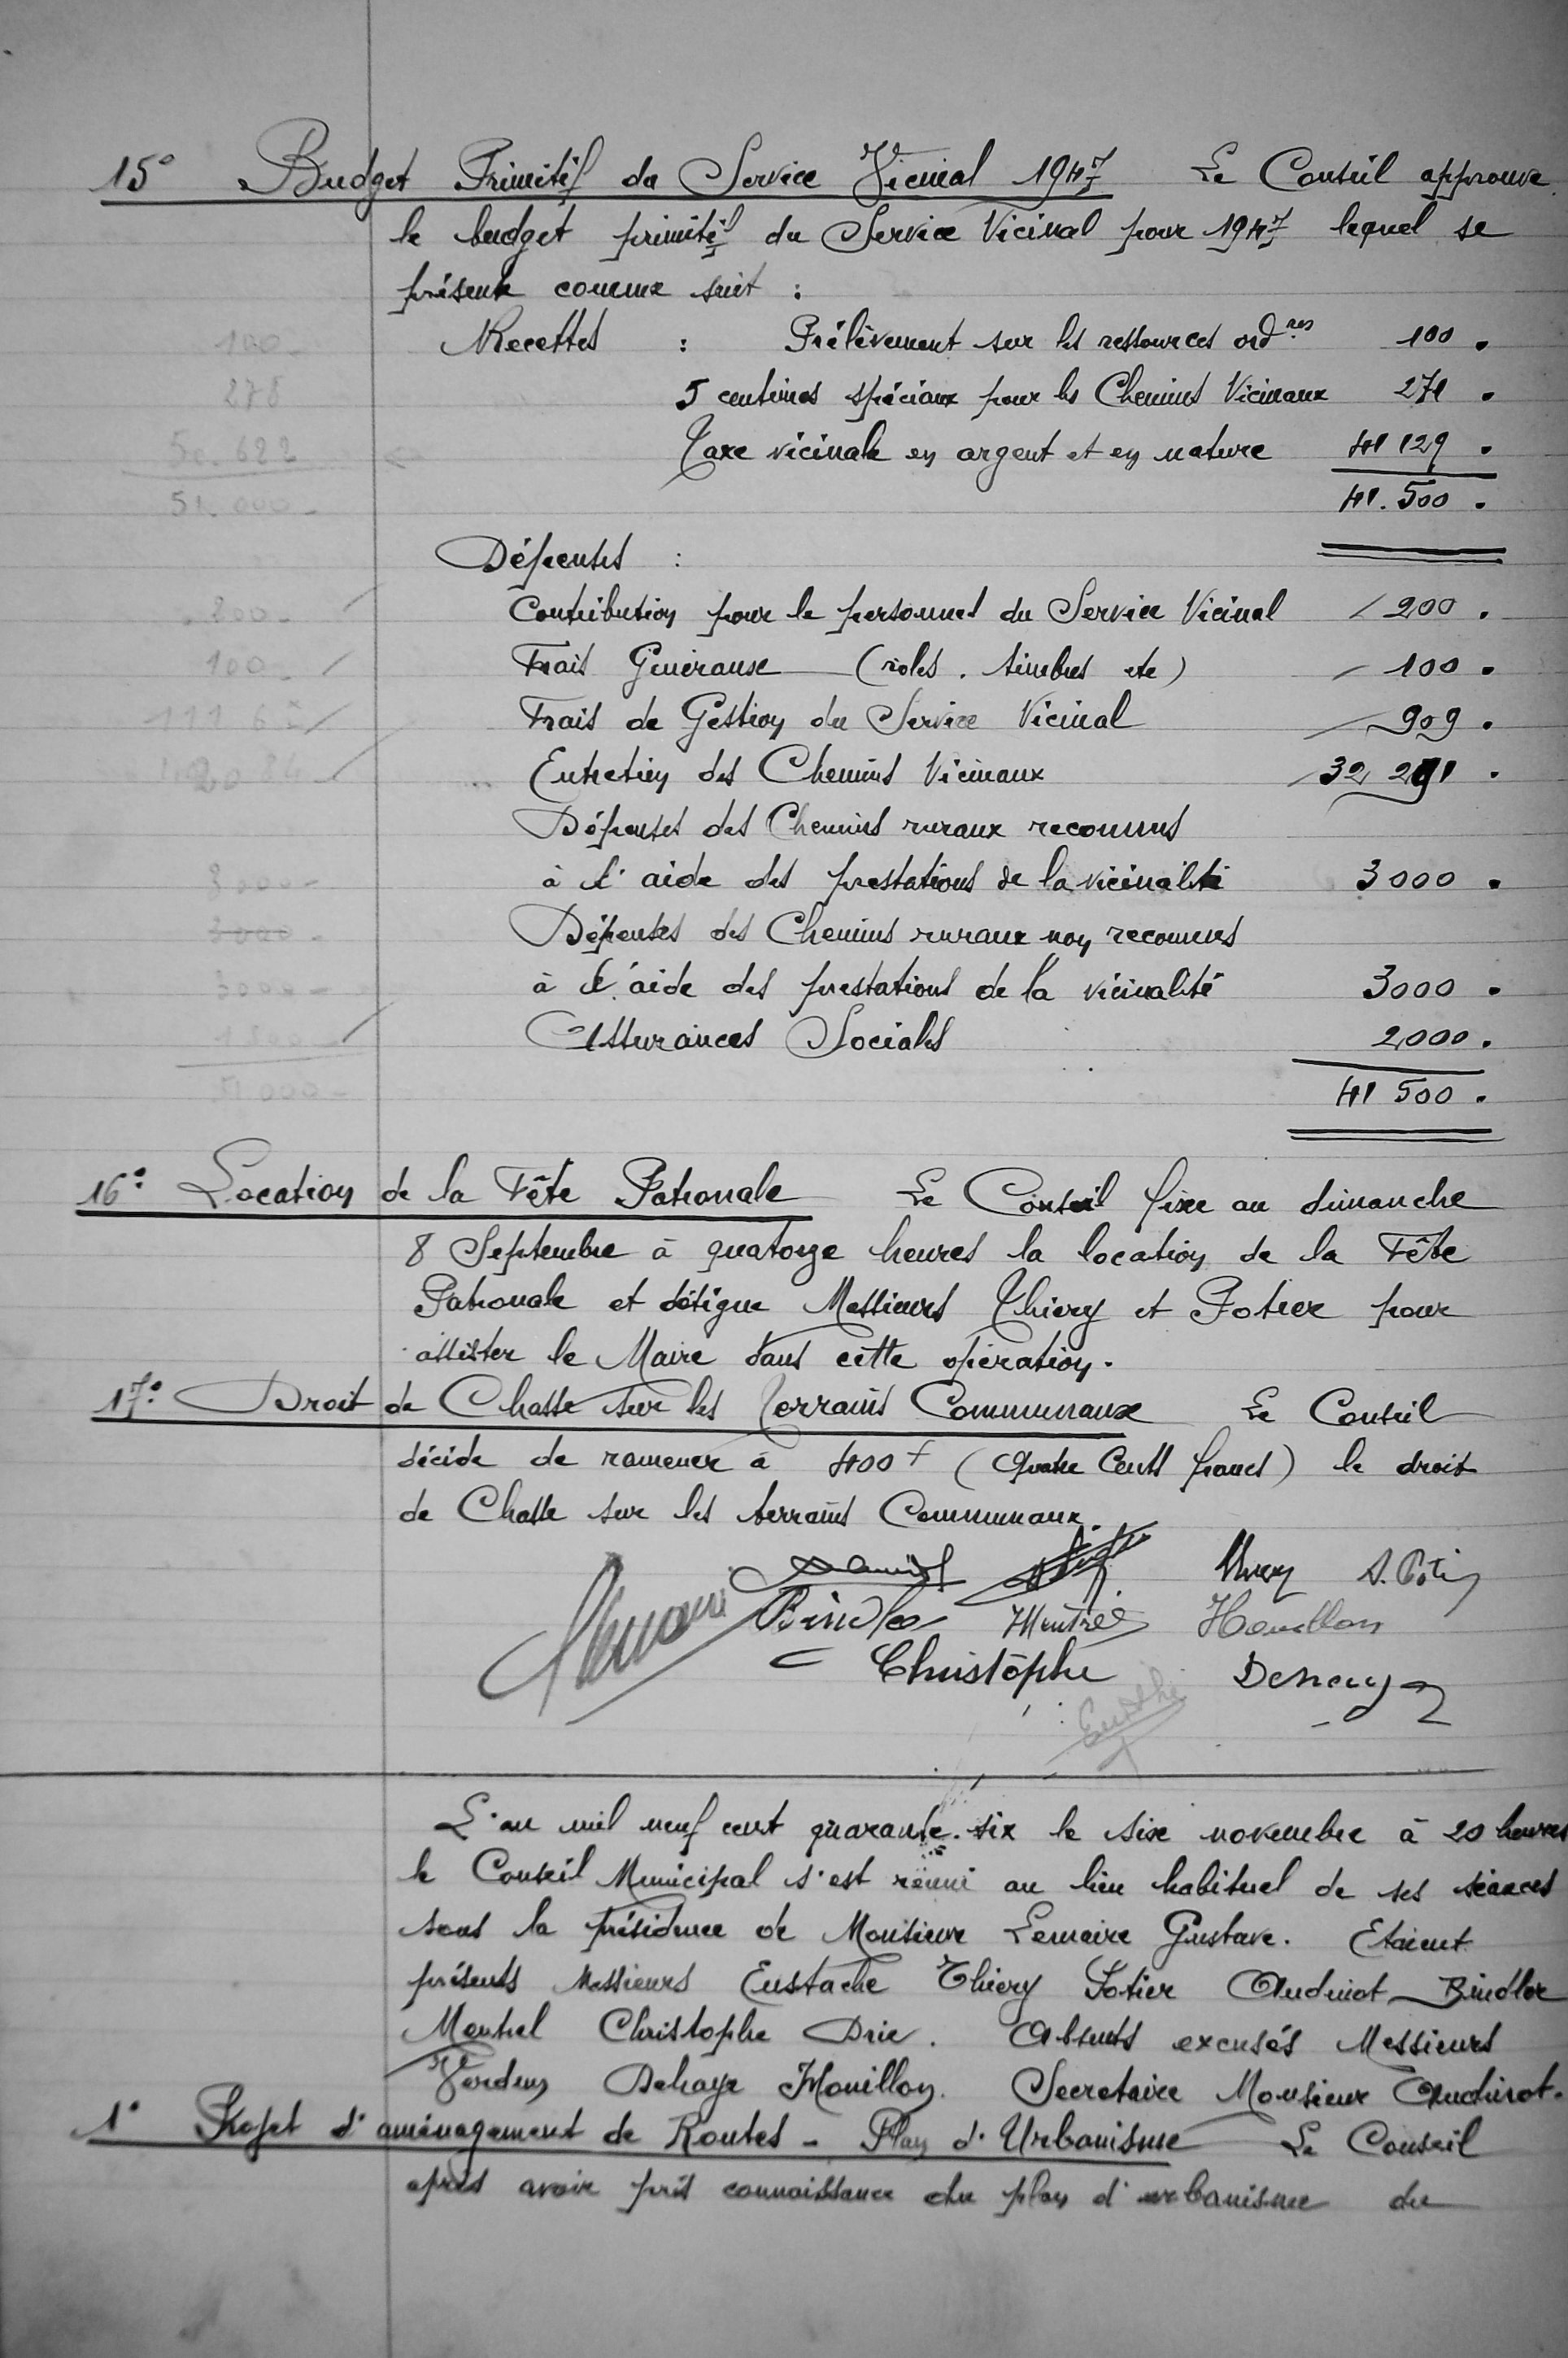 15° Budget Primitif du Service Vicinal 1947 Le Conseil approuve
le budget primitif du Service Vicinal pour 1947 lequel se
présente comme suit :
100 - Recettes : Prélèvement sur les ressources ord.res 100 .
278 5 centimes spéciaux pour les Chemins Vicinaux 271 .
50.622 Taxe vicinale en argent et en nature 41 129 .
51.000 - 41.500 .
Dépenses :
200 - Contribution pour le personnel du Service Vicinal 200 .
100 - Frais Généraux (rôles . timbres etc) 100 .
Frais de Gestion du Service Vicinal 909 .
Entretien des Chemins Vicinaux 32 291 .
Dépenses des Chemins ruraux reconnus
à l'aide des prestations de la vicinalité 3000 .
3000 - Dépenses des Chemins ruraux non reconnus
3000 - à l'aide des prestations de la vicinalité 3000 .
Assurances Sociales 2000 .
51 000 - 41 500 .
16° Location de la Fête Patronale Le Conseil fixe au dimanche
8 Septembre à quatorze heures la location de la Fête
Patronale et désigne Messieurs Thiery et Potier pour
assister le Maire dans cette opération.
17° Droit de Chasse sur les Terrains Communaux Le Conseil
décide de ramener à 400f (Quatre Cents francs) le droit
de Chasse sur les terrains Communaux.
Thiery
Bindler Mentrel Houillon
Christophe Dehaye
L'an mil neuf cent quarante.six le six novembre à 20 heures
le Conseil Municipal s'est réuni au lieu habituel de ses séances
sous la présidence de Monsieur Lemaire Gustave. Etaient
présents Messieurs Eustache Thiery Potier Audinot Bindler
Mentrel Christophe Drie. Absents excusés Messieurs
Verdun Dehaye Houillon. Secretaire Monsieur Audinot.
1° Projet d'aménagement de Routes - Plan d'Urbanisme Le Conseil
après avoir pris connaissance du plan d'urbanisme du